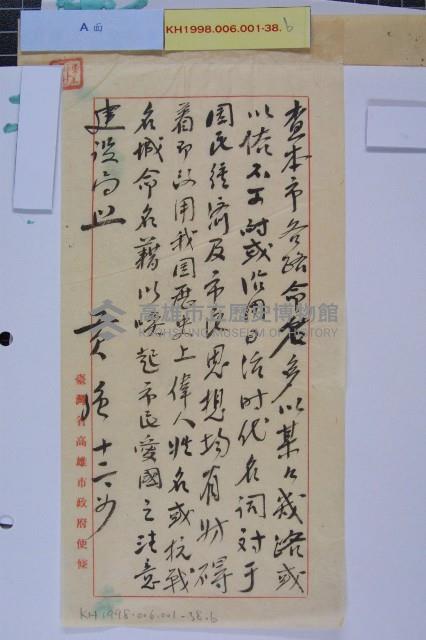 A面
KH1998.006.001-38.b
查本市各路命名多以某々我路或
以俗不可耐或沿用日治时代名詞对于
國民經濟及市民思想均有妨碍
着即改用我国歷史上偉人姓名或抗戰
名城命名藉以喚起市民愛國之注意
建设局
黃強 十二、
臺灣省高雄市政府便條
高雄市立歷史博物館
KAOHSIUNG MUSEUM OF HISTORY
KH1998.006.001-38.b